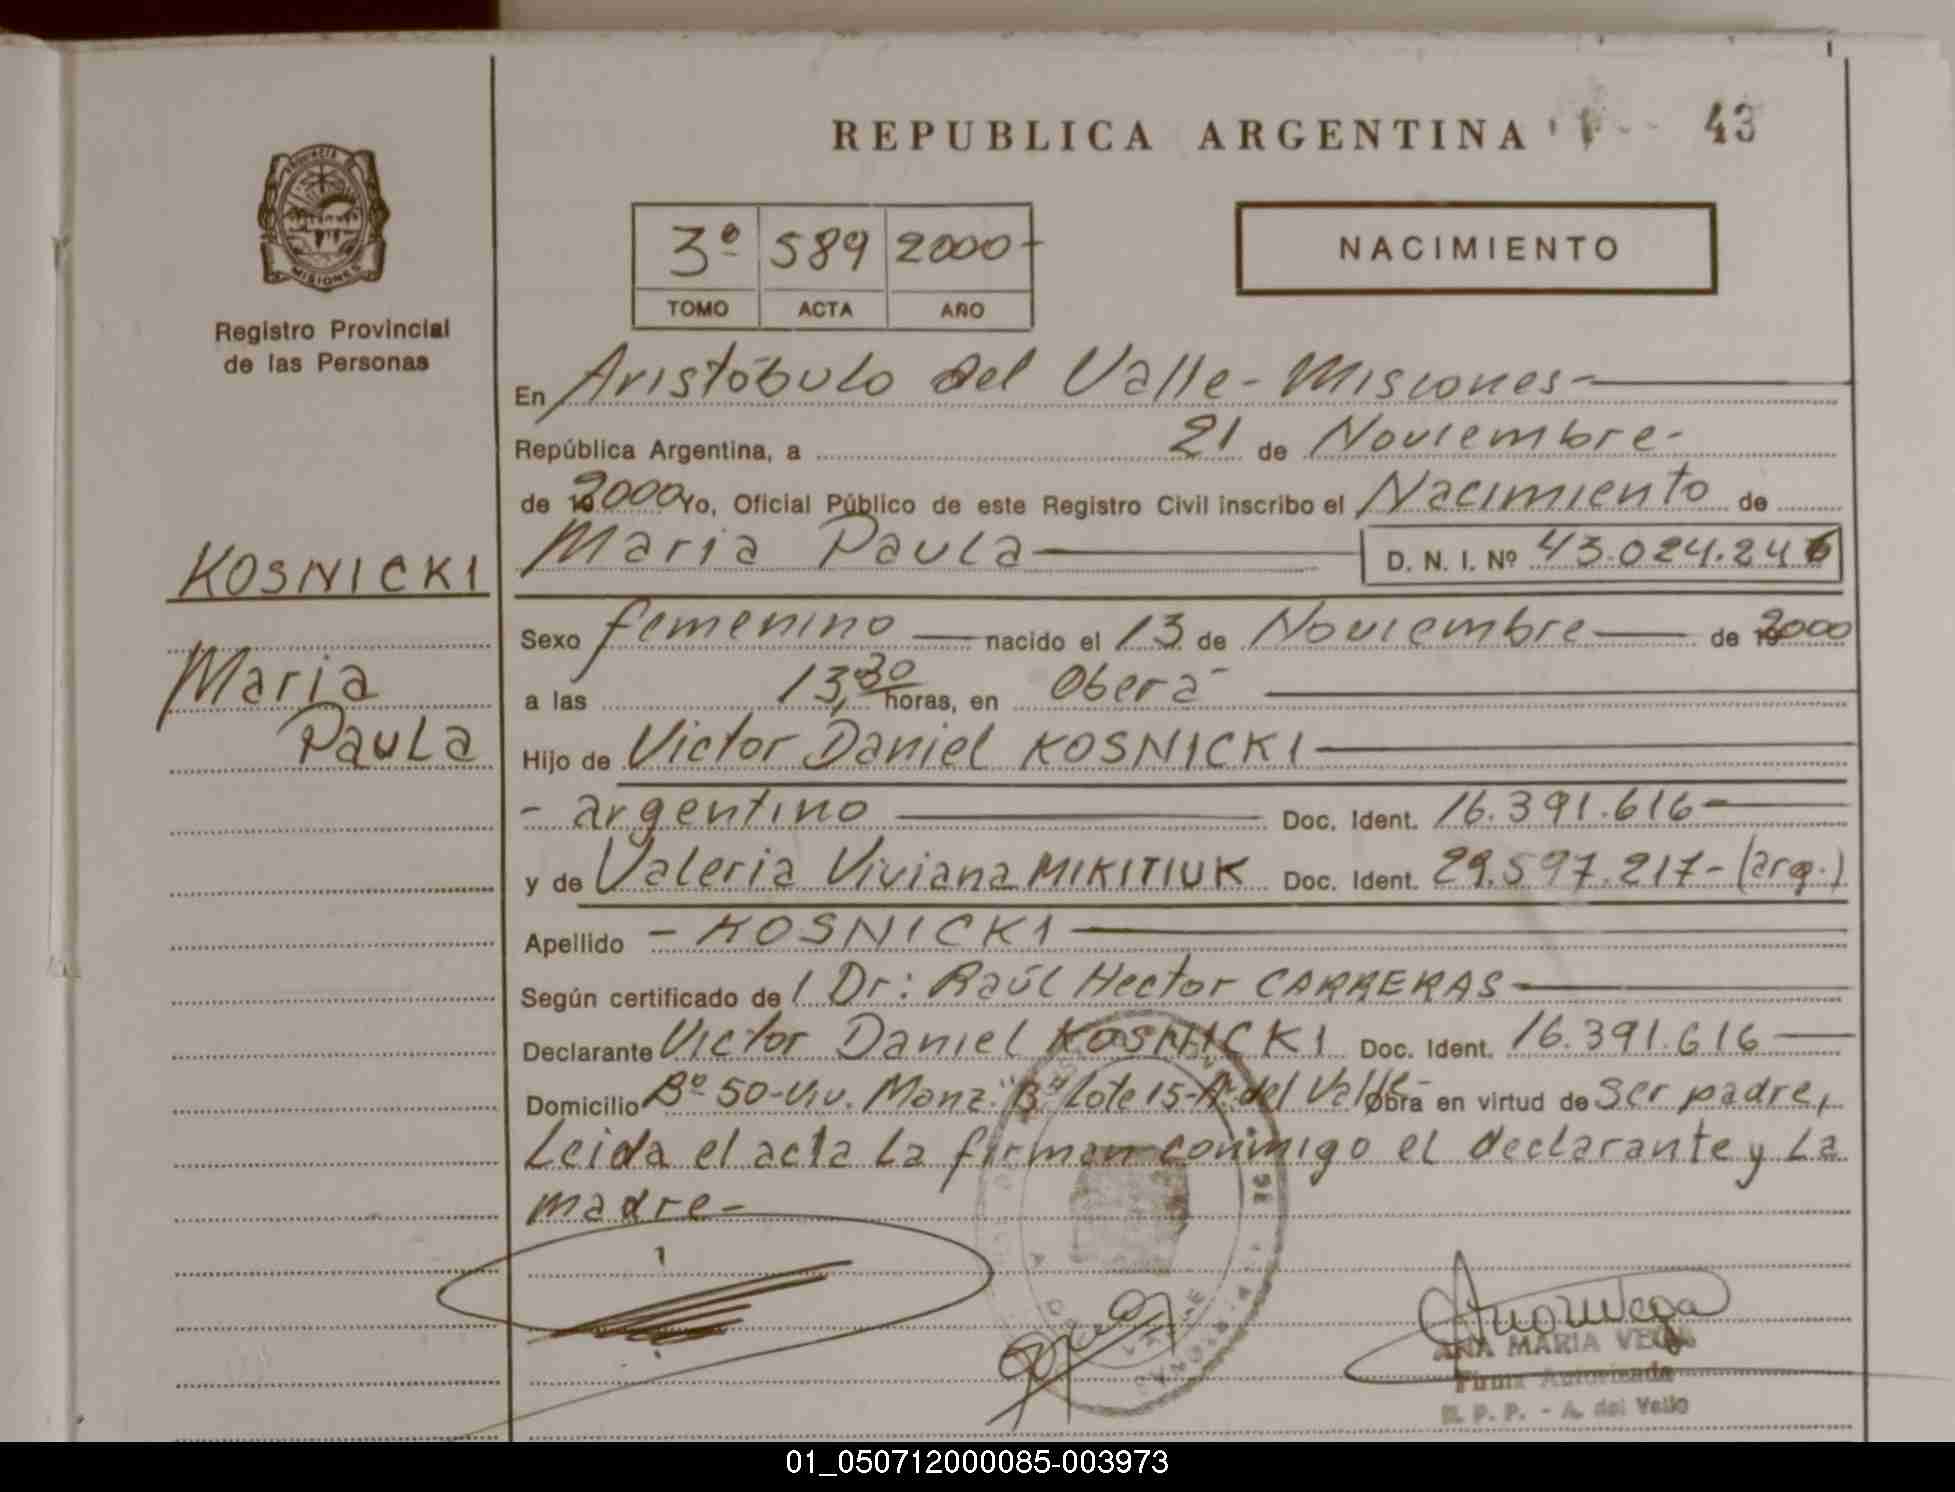 REPUBLICA ARGENTINA
43
PROVINCIA DE
MISIONES
Registro Provincial
de las Personas
3º 589 2000-
TOMO ACTA AÑO
NACIMIENTO
En Aristóbulo del Valle - Misiones -
República Argentina, a 21 de Noviembre -
de 2000 Yo, Oficial Público de este Registro Civil inscribo el Nacimiento de
Maria Paula D. N. I. Nº 43.024.246
KOSNICKI
Maria
Paula
Sexo femenino nacido el 13 de Noviembre de 2000
a las 13,30 horas, en Oberá -
Hijo de Victor Daniel KOSNICKI
- argentino Doc. Ident. 16.391.616 -
y de Valeria Viviana MIKITIUK Doc. Ident. 29.597.217 - (arg.)
Apellido - KOSNICKI
Según certificado de l Dr: Raúl Hector CARRERAS
Declarante Victor Daniel KOSNICKI Doc. Ident. 16.391.616
Domicilio Bº 50-Viv. Manz. "B" Lote 15-A. del Valle - Obra en virtud de ser padre,
Leida el acta la firman conmigo el declarante y la
madre -
ANA MARIA VEGA
Firma Autorizada
R. P. P. - A. del Valle
01_050712000085-003973